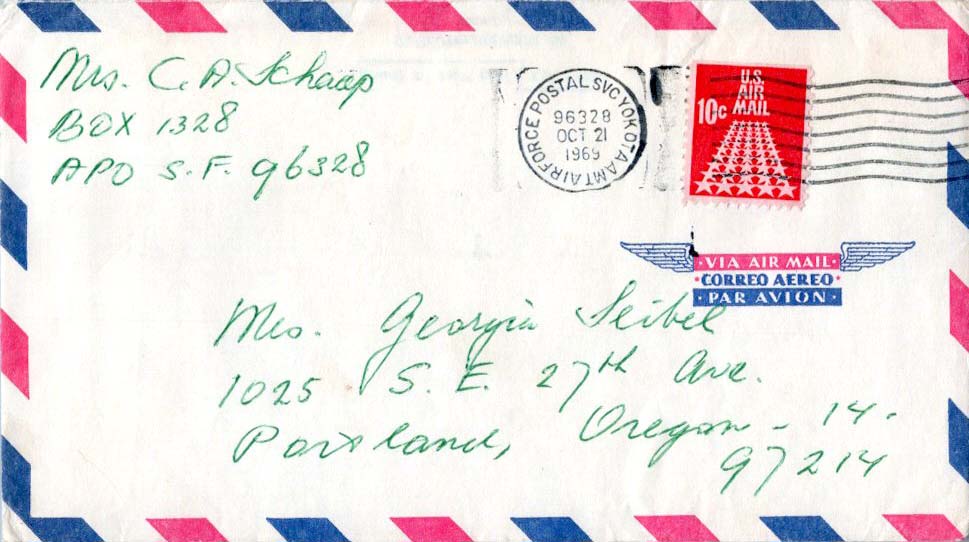 Mrs. C. A. Schaap
BOX 1328
APO S.F. 96328
AIRFORCE POSTAL SVC YOKOTA AMT
96328
OCT 21
1969
U.S.
AIR
10c MAIL
· VIA AIR MAIL ·
· CORREO AEREO ·
· PAR AVION ·
Mrs. Georgia Seibel
1025 S. E. 27th Ave.
Portland, Oregon - 14 -
97214